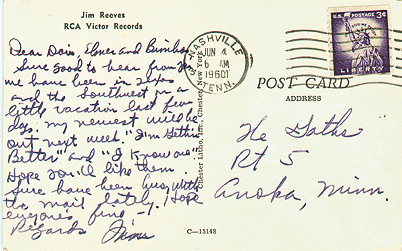 Jim Reeves
RCA Victor Records
Dear Dois, Elmer and Bimbo
Sure good to hear from you
we have been in Texas
and the Southwest on a
little vacation last few
days. my newest will be
out next week. "I'm Gettin'
Better" and "I Know one".
Hope you'll like them.
Sure have been busy with
the mail lately. I Hope
everyone's fine —
Regards Jim
C—15148
Chester Litho, Inc., Chester, New York
NASHVILLE
JUN 4
6 AM
1960
TENN.
U.S. POSTAGE 3¢
LIBERTY
POST CARD
ADDRESS
The Goths
Rt 5
Anoka, Minn.